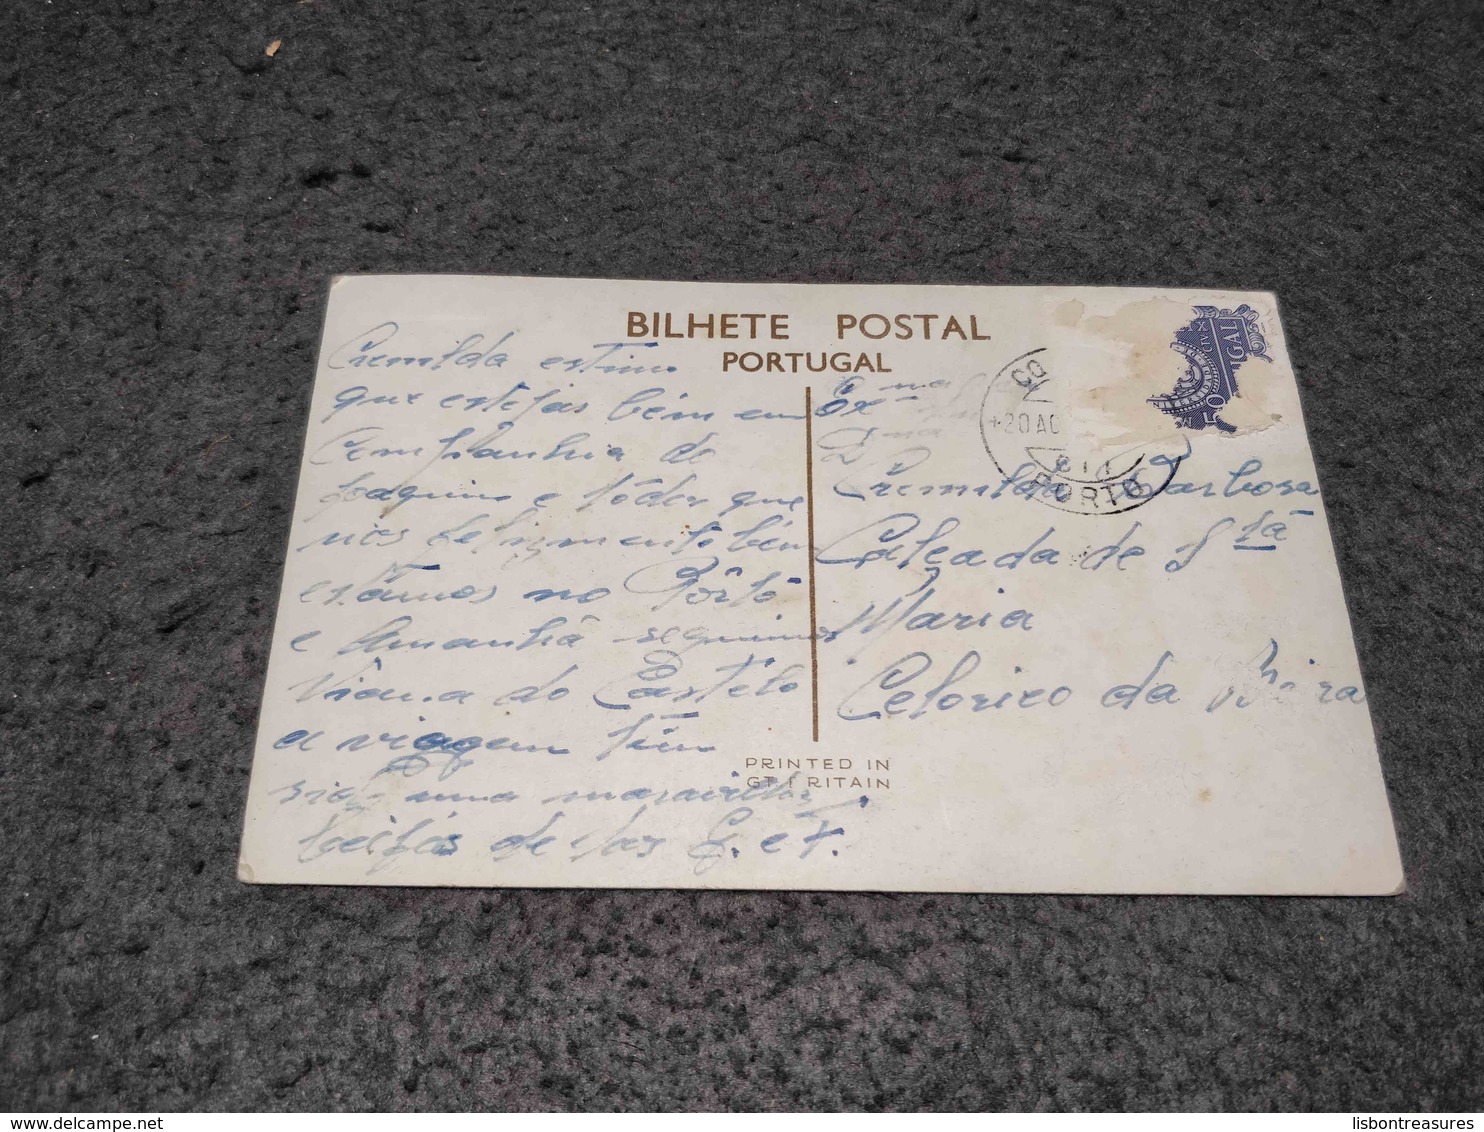 BILHETE POSTAL
PORTUGAL
Cremilda estimo
que estejas bém em
Companhia de
Joaquim e tôdos que
nós felizmente bém
estâmos no Pôrto
e Amanhã seguimos
Viana do Castélo
a viagem tem
sido uma maravilha
beijos de das G. e F.
Exma
Dna
Cremilda Barbosa
Calçada de Stã
Maria
Celorico da Beira
+20 AG
PORTO
PRINTED IN
GT BRITAIN
lisbontreasures.com